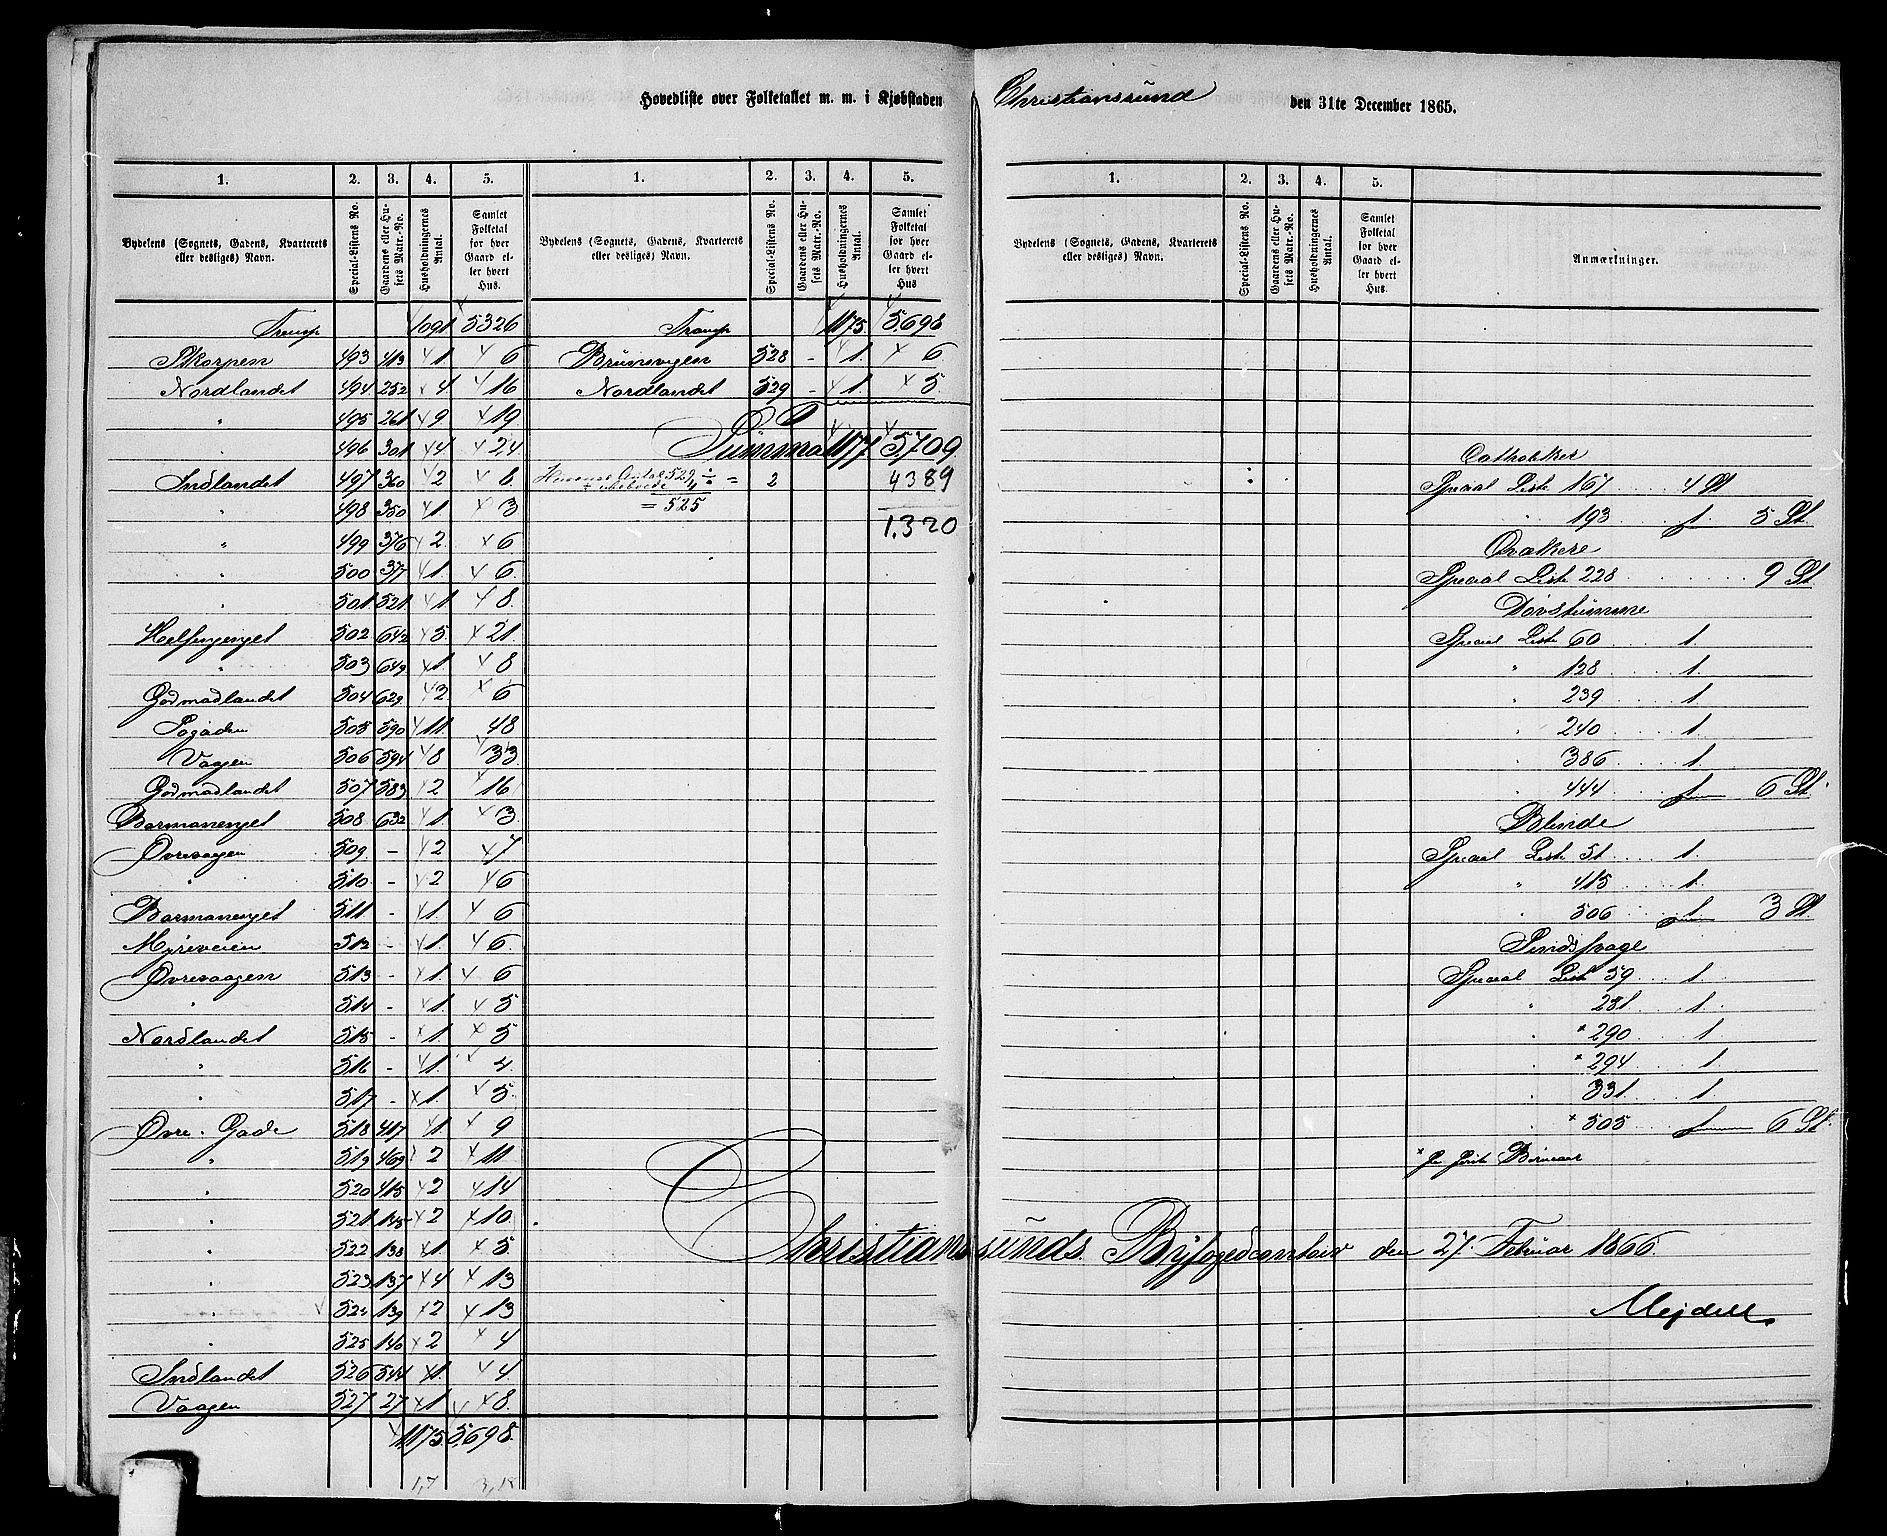 Hovedliste over Folketallet m. m. i Kjøbstaden Christianssund den 31te December 1865.
1. 2. 3. 4. 5. 1. 2. 3. 4. 5.
Bydelens (Sognets, Gadens, Kvarterets eller desliges) Navn. Special-Listens No. Gaardens eller Husets Matr.-No. Husholdningernes Antal. Samlet Folketal for hver Gaard eller hvert Hus.
Bydelens (Sognets, Gadens, Kvarterets eller desliges) Navn. Special-Listens No. Gaardens eller Husets Matr.-No. Husholdningernes Antal. Samlet Folketal for hver Gaard eller hvert Hus
Transp 1091 5326
Skorpen 493 413 1 6
Nordlandet 494 252 4 16
" 495 261 9 19
" 496 301 4 24
Indlandet 497 360 2 8
" 498 350 1 3
" 499 376 2 6
" 500 377 1 6
" 501 521 1 8
Helsingenget 502 642 5 21
" 503 649 1 8
Godmadlandet 504 629 2 6
Søgaden 505 590 11 48
Vagen 506 594 8 33
Godmadlandet 507 583 2 16
Barmanenget 508 632 1 3
Øvrevagen 509 - 2 7
" 510 - 2 6
Barmanenget 511 - 1 6
Myreveien 512 - 1 6
Øvrevaagen 513 - 1 6
" 514 - 1 5
Nordlandet 515 - 1 5
" 516 - 1 4
" 517 - 1 5
Øvre-Gade 518 417 1 9
" 519 469 2 11
" 520 415 2 14
" 521 135 2 10
" 522 138 1 5
" 523 137 4 13
" 524 139 2 13
" 525 140 2 4
Indlandet 526 544 1 4
Vaagen 527 27 1 8
1175 5698
Transp 1175 5,698
Brunsvigen 528 - 1 6
Nordlandet 529 - 1 5
Summa 1177 5,709
Husenes Antal 529 ÷ = 2 4389
= 525
1,320
1. 2. 3. 4. 5.
Bydelens (Sognets, Gadens, Kvarterets eller desliges) Navn. Special-Listens No. Gaardens eller Husets Matr.-No. Husholdningernes Antal. Samlet Folketal for hver Gaard eller hvert Hus. Anmærkninger.
Catholikker
Special Liste 167 4 St
" 193 1 5 St.
Qvækere
Special Liste 228 9 St
Døvstumme
Special Liste 60 1
" 128 1.
" 239 1
" 240 1.
" 386 1.
" 444 1 6 St.
Blinde
Special Liste 51 1.
" 415 1.
" 506 1. 3 St.
Sindssvage
Special Liste 59 1.
" 231 1.
" * 290 1
" * 294 1
" 331 1.
" * 505 1 6 St.
Christianssunds Byfogedcontoir den 27. Februar 1866.
Mejdell.